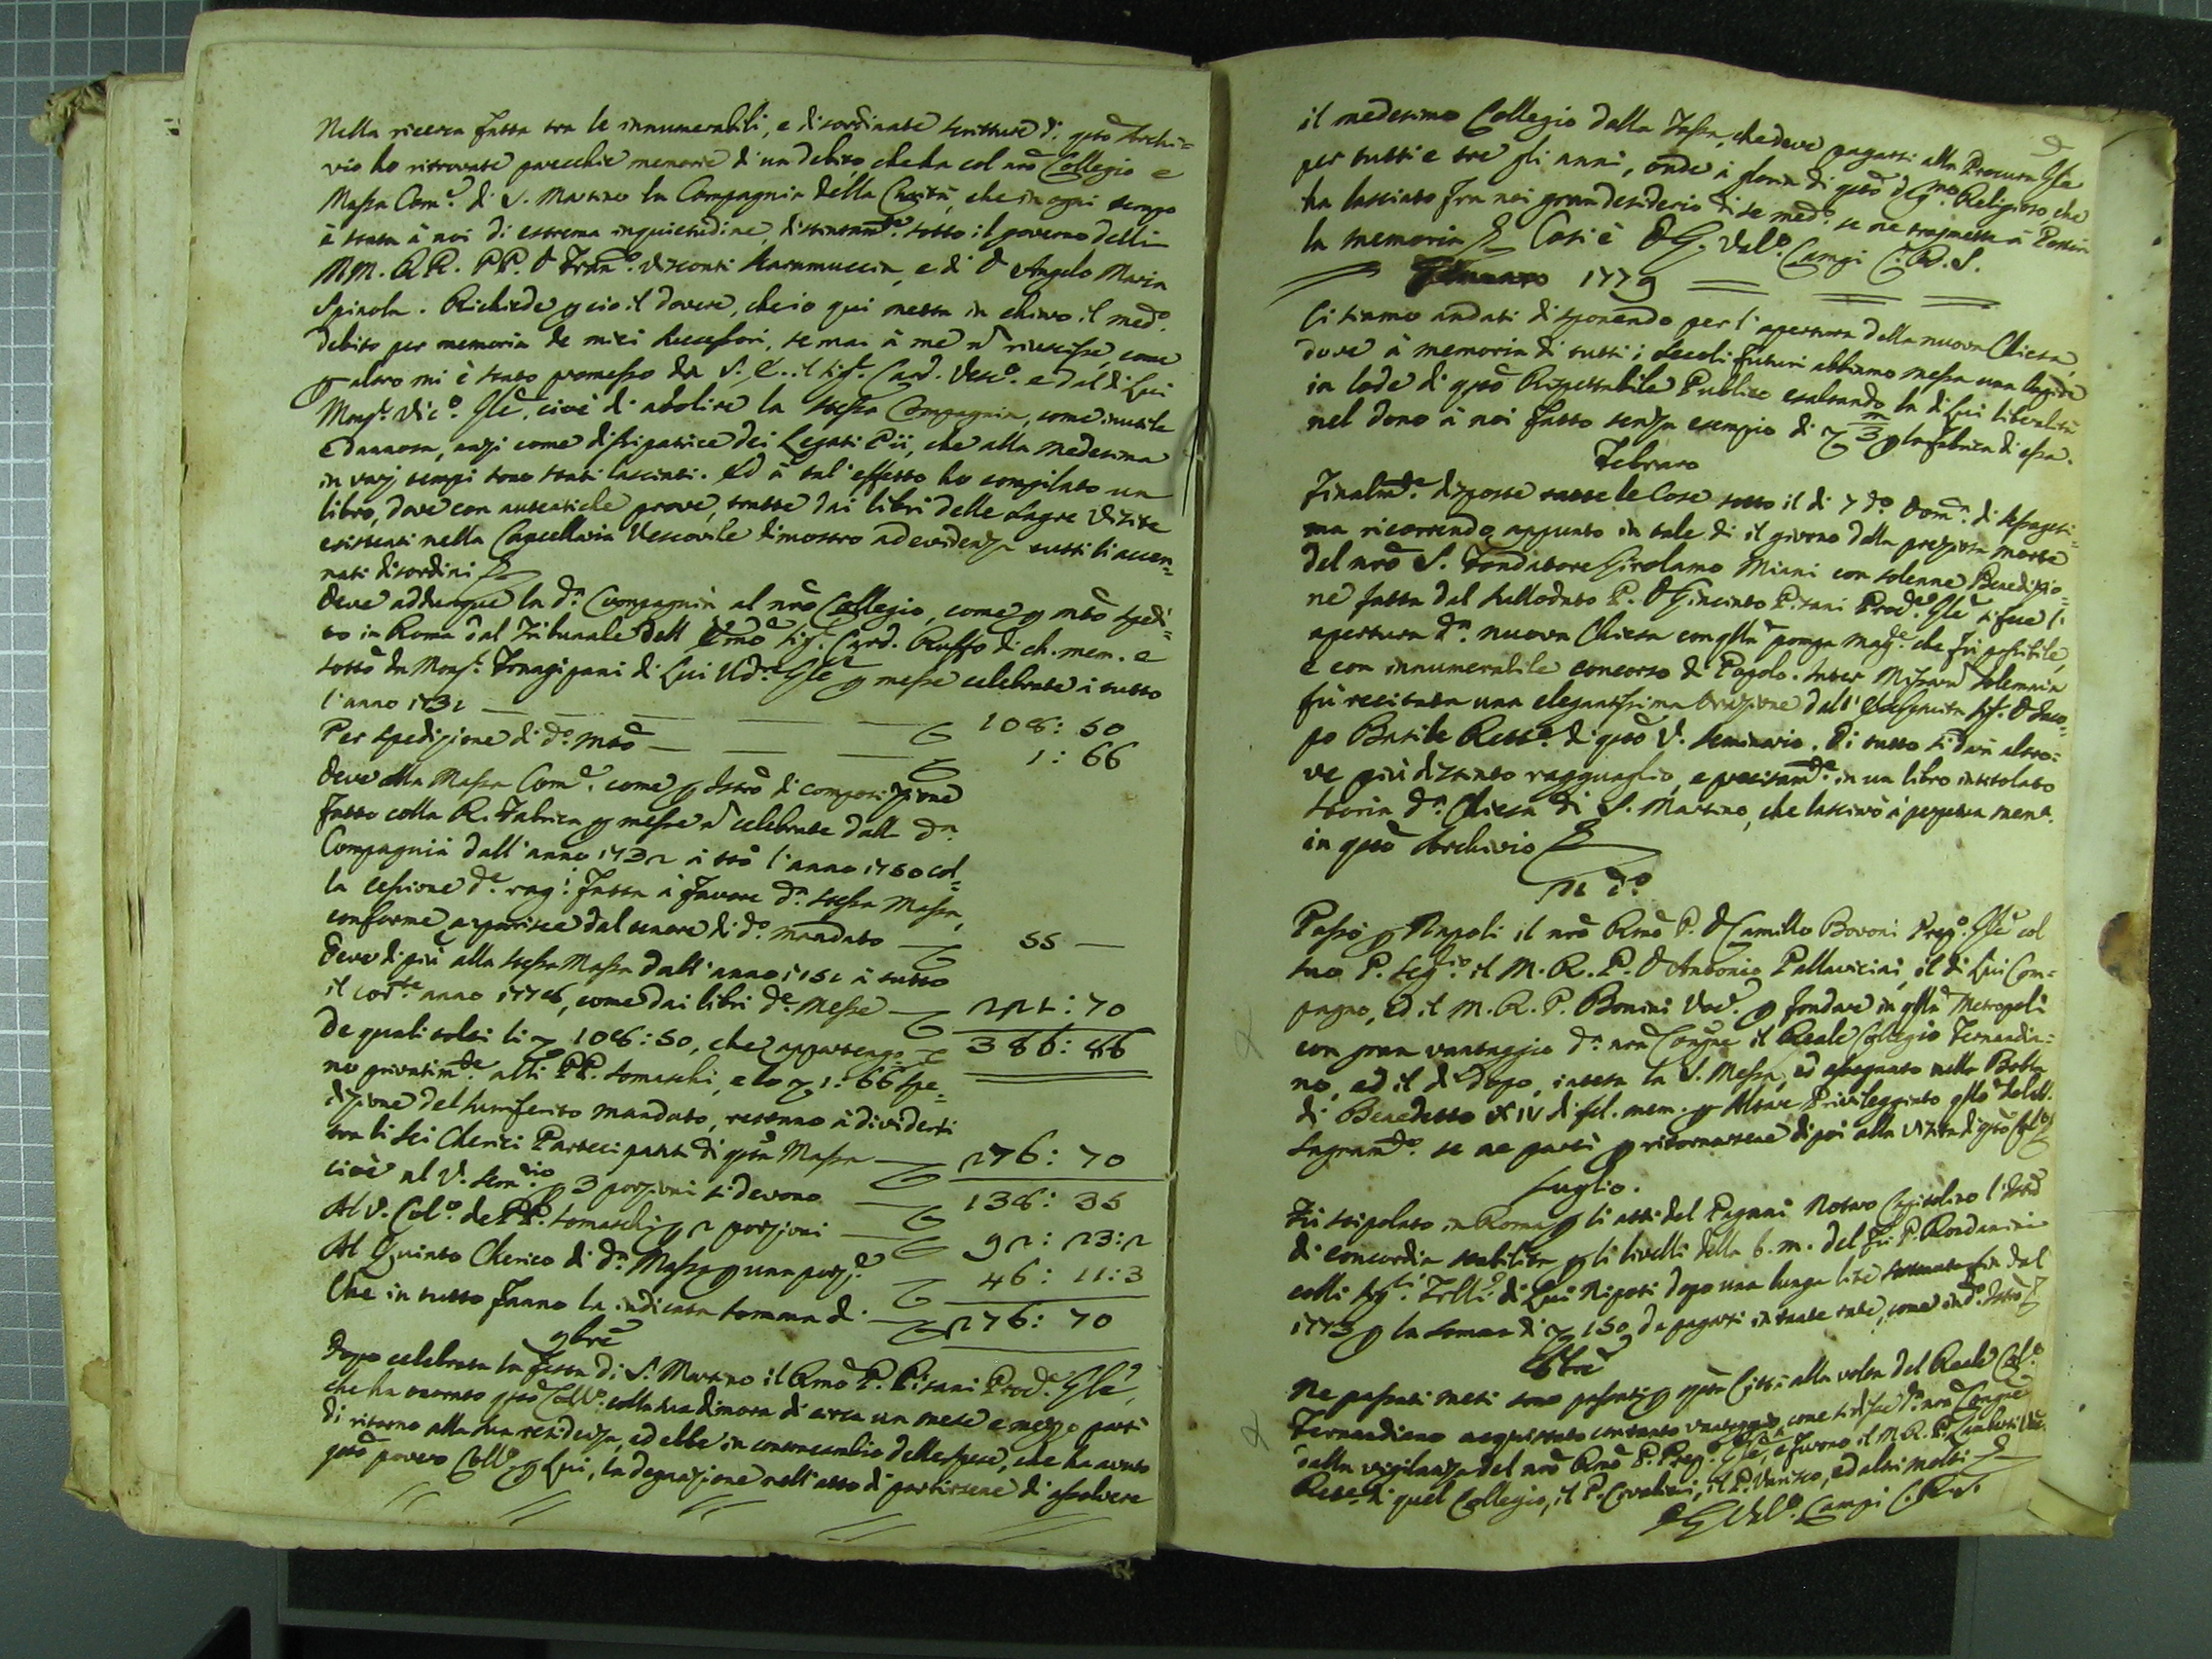 Nella ricerca fatta tra le innumerabili, e disordinate scritture di qsto Archi=
vio ho ritrovate parecchie memorie d'un debito, che ha col nrõ Collegio e
Massa Com.e di S. Martino la Compagnia della Carità, che in ogni tempo
è stata à noi di estrema inquietudine, distintam.te sotto il governo delli
MM. RR. PP. D Fran.o Visconti Karamuccia, e di D Angelo Maria
Spinola. Richiede p ciò il dovere, che io qui metta in chiaro il med.o
debito per memoria de miei successori, se mai à me ñ riuscisse, come
p altro mi è stato promesso da S. E. il Sig.r Card. Vesc.o e dal di Lui
Mons.r Vic.o Gle, cioè di abolire la stessa Compagnia, come inutile
e dannosa, anzi come dissipatrice dei Legati Pii, che alla medesima
in varj tempi sono stati lasciati. Ed à tal' effetto ho compilato un
libro, dove con autentiche prove, tratte dai libri delle Sagre Visite
esistenti nella Cancellaria Vescovile dimostro ad evidenza tutti li accen=
nati disordini
Deve addunque la d.a Compagnia al nrõ Collegio, come p mtõ spedi=
to in Roma dal Tribunale dell' Emõ Sig.r Card. Ruffo di ch. mem. e
totto da Mons.r Frangipani di Lui Ud.re Gle p messe celebrate à tutto
l'anno 1731 — — — — 108: 50
Per spedizione di d.o mtõ — — — 1: 66
Deve alla Massa Com.e come p Istrõ di composizione
fatto colla R. Fabrica p messe ñ celebrate dall d.a
Compagnia dall'anno 1732 à ttõ l'anno 1750 col=
la cessione d.e rag.i fatta à favore d.a stessa Massa,
conforme apparisce dal tenore di d.o mandato — 55 —
Deve di più alla stessa Massa dall'anno 1751 à tutto
il cor.te anno 1778, come dai libri d.e Messe — 221: 70
De quali tolti li 108: 50, che appartengo= 386: 86
no privatim.te alli PP. Somaschi, e lo 1: 66 spe=
dizione del surriferito mandato, restano à dividersi
tra li sei Cherici Partecipanti di qsta Massa — 276: 70
cioè al V. Sem.rio p 3 porzioni si devono — 138: 35
Al V. Col.o de PP. Somaschi p 2 porzioni — 92: 23:2
Al Quinto Cherico di d.a Massa p una porz.e — 46: 11:3
Che in tutto fanno la indicata somma di — 276: 70
9bre
Dopo celebrata la Festa di S. Martino il Rmõ P. Pisani Proc.e Gle,
che ha onorato qsto Coll.o colla sua dimora di circa un mese e mezzo partì
di ritorno alla sua residenza, ed ebbe in contracambio delle spese, che ha avuto
qsto povero Coll.o p Lui, la degnazione nell'atto di partirsene di assolvere
il medesimo Collegio dalla Tassa, che deve pagarsi alla Procura Gle
per tutti e tre gli anni, onde à gloria di qsto deg.mo Religioso che
ha lasciato fra noi gran desiderio di se med.o se ne trasmette à Posteri
la memoria Così è D G. Val.o Campi C. R. S.
Gennaro 1779
Ci siamo andati disponendo per l'apertura della nuova Chiesa,
dove à memoria di tutti i secoli futuri abbiamo messa una lapide
in lode di qsto Rispettabile Publico esaltando la di Lui liberalità
nel dono à noi fatto senza esempio di 3 m p la fabrica di essa.
Febraro
Finalm.te disposte tutte le Cose sotto il dì 7 d.o Dom.a di Sessagesi=
ma ricorrendo appunto in tale dì il giorno della preziosa morte
del nrõ S. Fondatore Girolamo Miani con solenne Benedizio=
ne fatta dal Sullodato P. D Giacinto Pisani Proc.e Gle si fece l'
apertura d.a nuova Chiesa con qlla pompa mag.e che fù possibile,
e con innumerabile concorso di Popolo. Inter Missarũ Solemnia
fù recitata una elegantissima Orazione dall' Exgesuita Sig.r D Jaco=
po Basile Rett.e di qsto V. Seminario. Di tutto si darà altro=
ve più distinto ragguaglio, e precisam.te in un libro intitolato
Storia d.a Chiesa di S. Martino, che lascierò à perpetua mem.a
in qsto Archivio
21 d.o
Passò p Napoli il nrõ Rmõ P. D Camillo Bovoni Prep.o Gle col
suo P. Seg.rio il M. R. P. D Antonio Pallavicini, il di Lui Com=
pagno, ed il M. R. P. Bonini Voc.e p fondare in qlla Metropoli
con gran vantaggio d.a nrã Congne il Reale Collegio Fernandia=
no, ed il dì dopo, intesa la S. Messa, ed assegnato nella Bolla
di Benedetto XIV di fel. mem. p Altare Privileggiato qllo del SS.
Sagram.to se ne partì p ritornarsene di poi alla visita di qsto Col.o
Luglio.
Fù stipolato in Roma p li atti del Pagnani Notaro Capitolino l'Istrõ
di concordia stabilita p li livelli della b. m. del fù P. Rondanini
colli Sig.ri Felli di Lui Nipoti dopo una lunga lite fin dal
1773 p la somma di 150 da pagarsi in tante rate, come in d.o Istrõ
8bre
Ne passati mesi sono passati p qsta Città alla volta del Reale Col.o
Fernandiano acquistato con tanto vantaggio, come si disse d.a nrã Congne
dalla vigilanza del nrõ Rmõ P. Prep.o Gle, e furono il M. R. P.
Rett.e di quel Collegio, il P. Cavalieri, il P. Varisco, ed altri molti
D G Val.o Campi C. R. S.